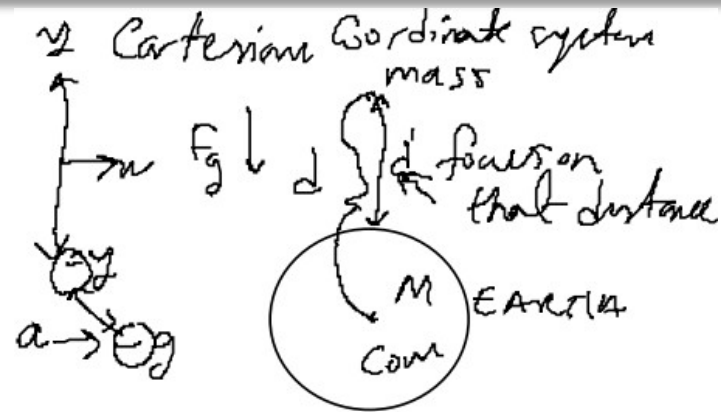 y Cartesian Coordinate system
mass
Fg d d focus on
that distance
-y
M EARTH
a -g
COM